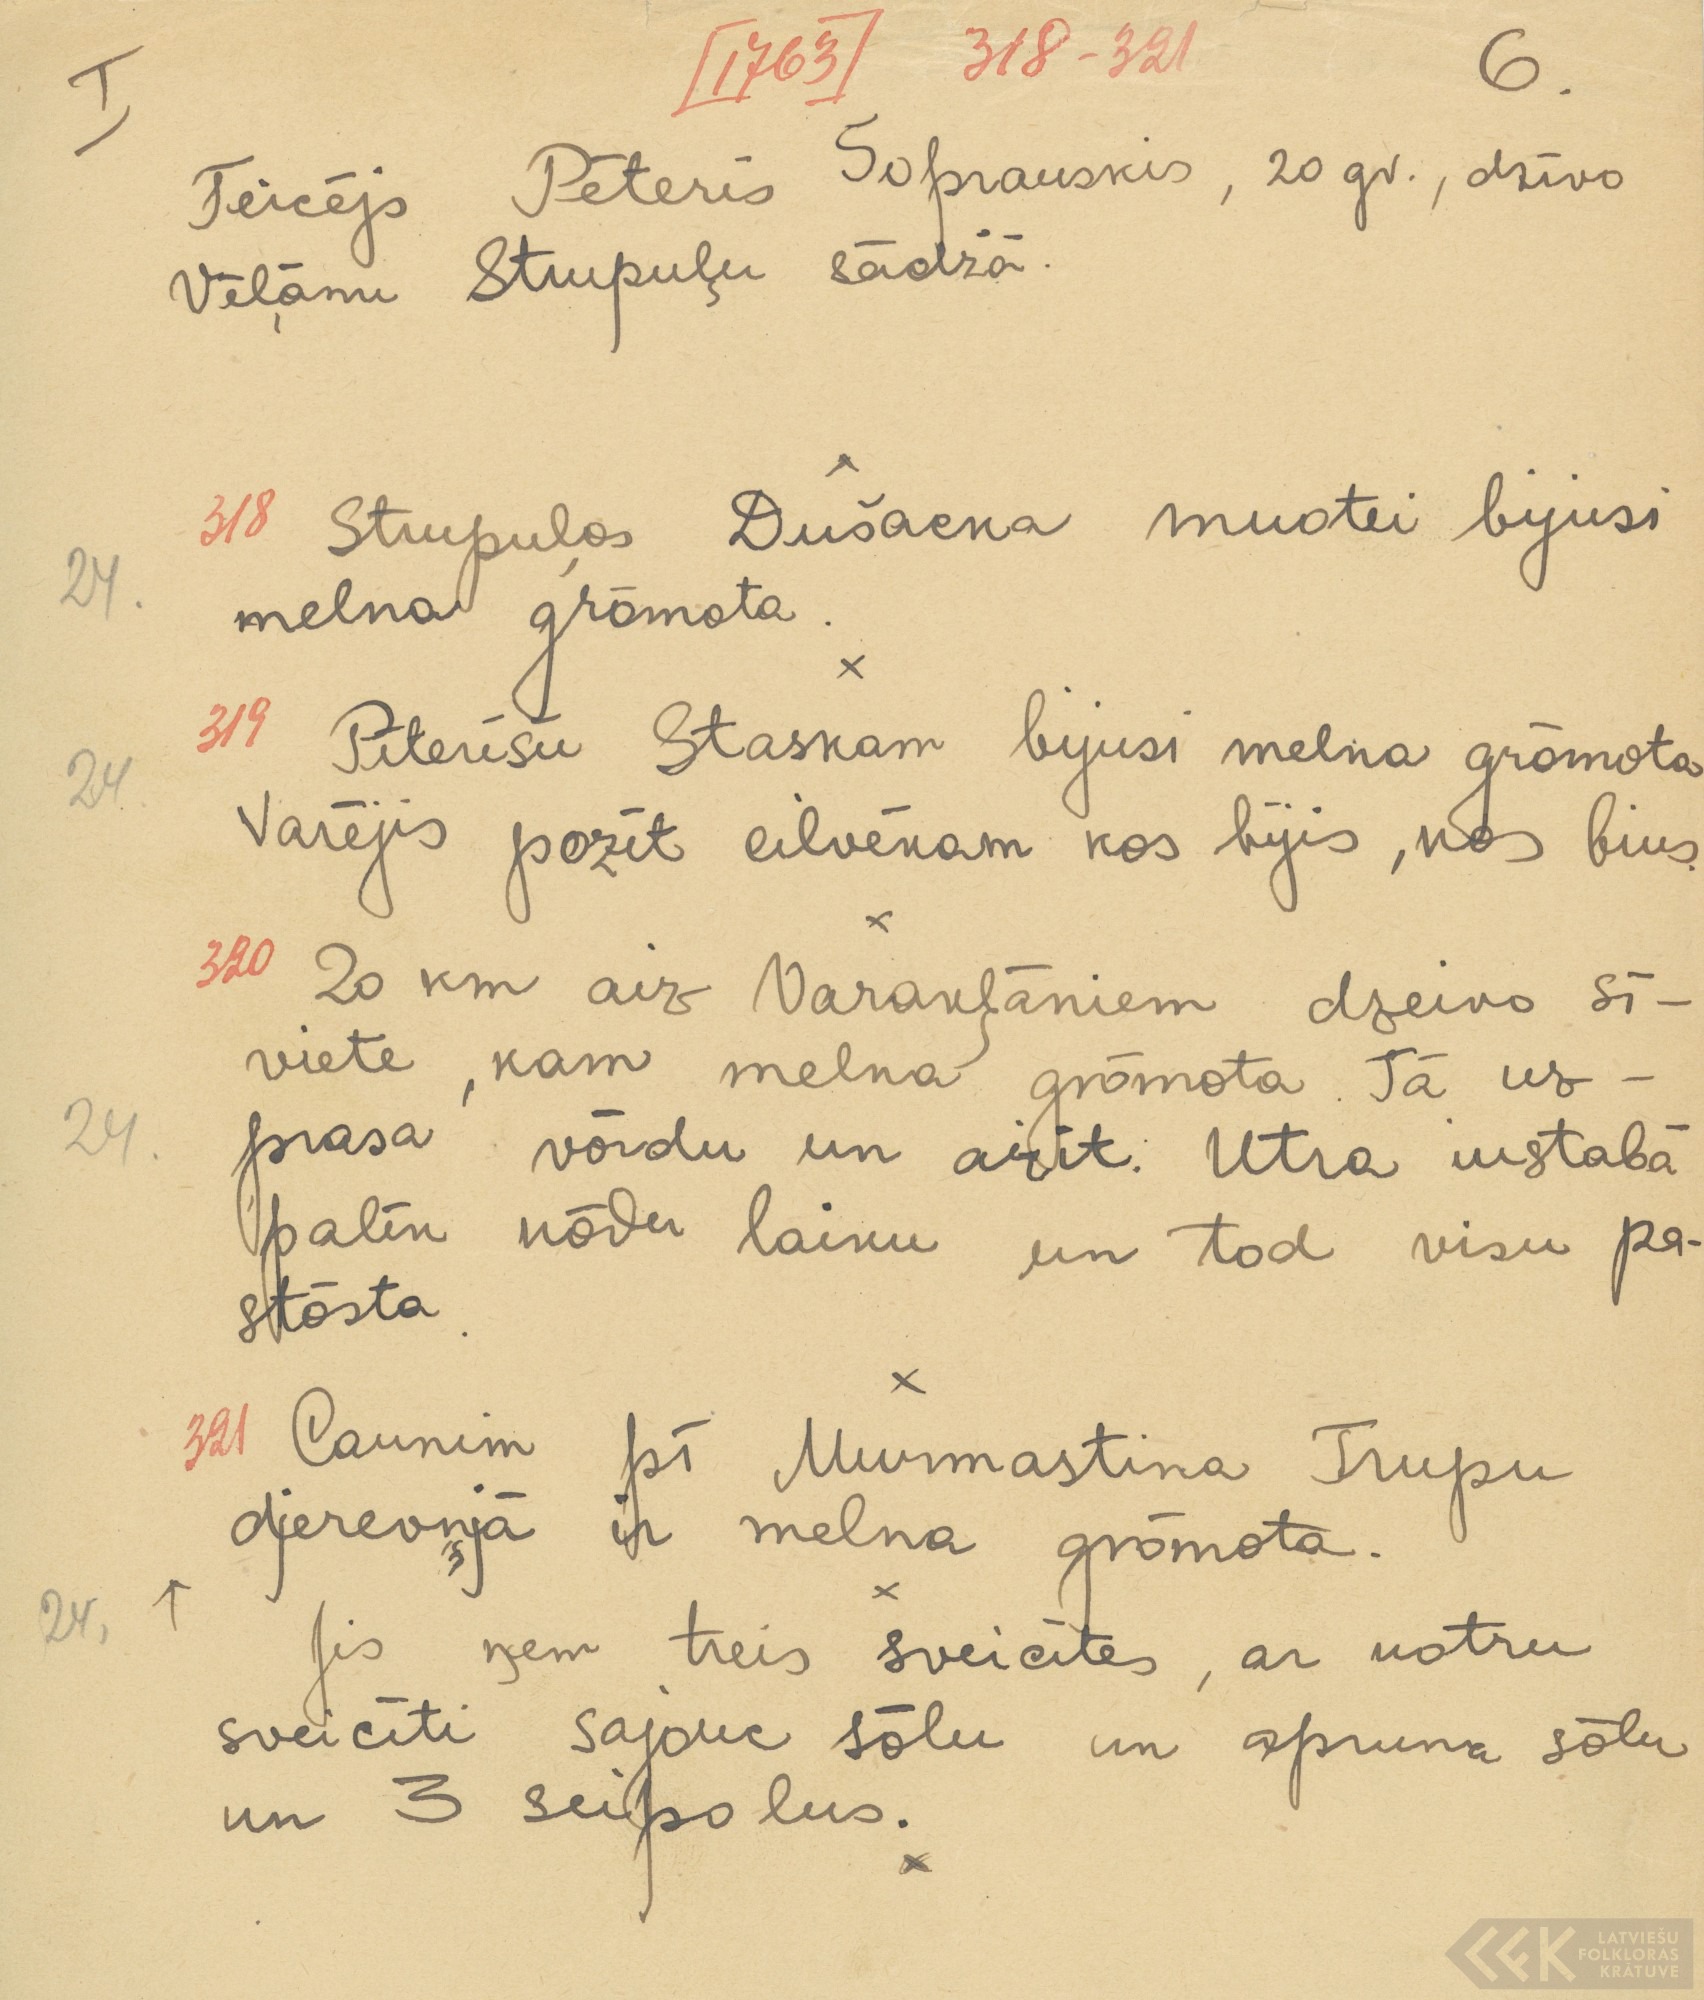 I [1763] 318-321 6.
Teicējs Pēteris Soprauskis, 20 gv., dzīvo
Vēļānu Strupuļu sādžā.
318 Strupuļos Dušacka muotei bijusi
24. melna grōmota.
x
319 Piterīšu Staskam bijusi melna grōmota
24. Varējis pozīt cilvēkam kos bījis, kos bius.
x
320 20 km aiz Varakļāniem dzeivo sī-
viete, kam melna grōmota. Tā uz-
24. prasa vōrdu un aizīt. Utra iustabā
palīk kōdu laiku un tod visu pa-
stōsta.
x
321 Caunim pī Murmastina Trupu
djerevņjā ir melna grōmota.
x
24. ↑ Jis ņem treis sveicītes, ar kotru
sveicīti sajauc sōlu un apruna sōlu
un 3 seipolus.
x
LATVIEŠU
FOLKLORAS
KRĀTUVE